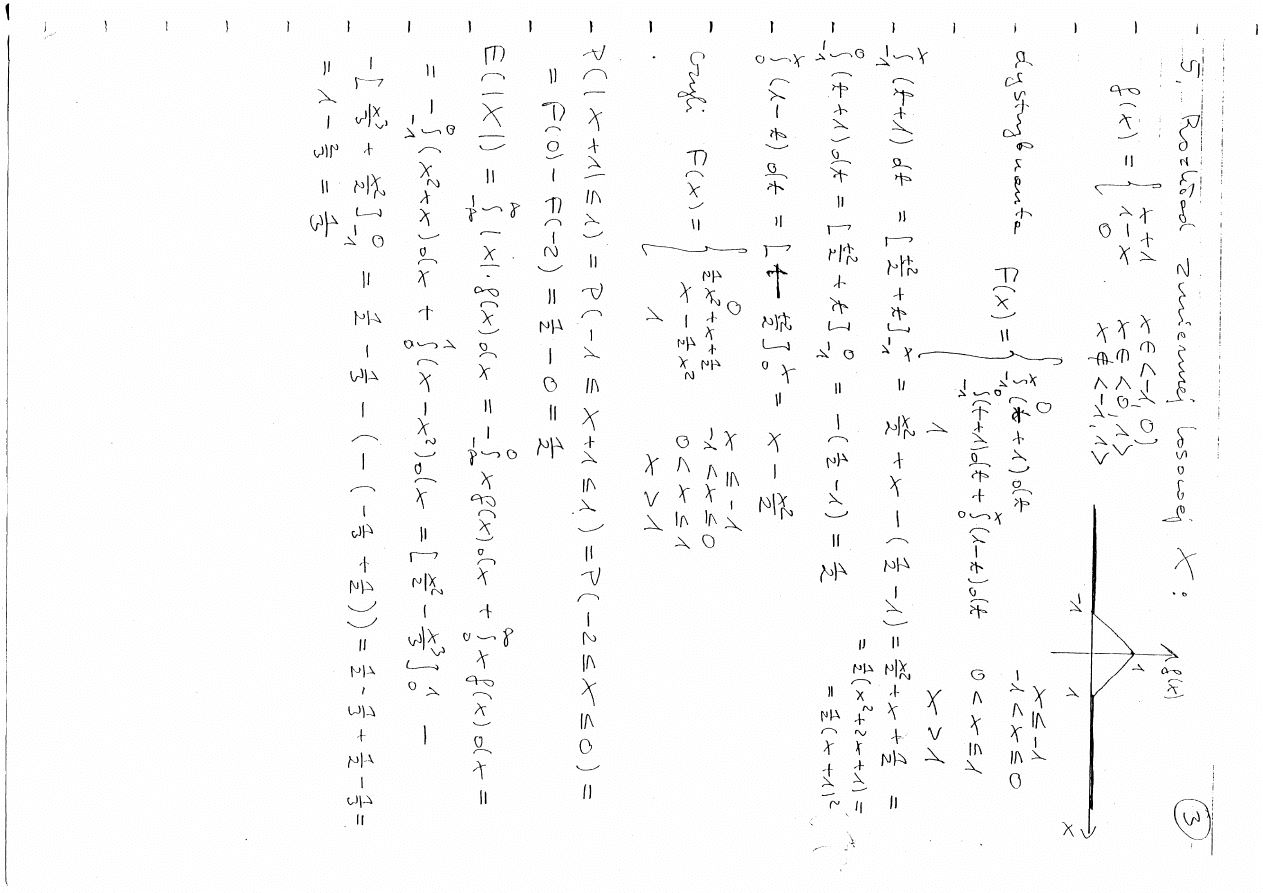 5. Rozkład zmiennej losowej X: ③
f(x) = { x+1 x∈<-1,0)
1-x x∈<0,1>
0 x∉<-1,1>
f(x)
1
-1 1 x
dystrybuanta F(x) = { 0 x≤-1
∫_{-1}^{x} (t+1)dt -1<x≤0
∫_{-1}^{0} (t+1)dt + ∫_{0}^{x} (1-t)dt 0<x≤1
1 x>1
∫_{-1}^{x} (t+1) dt = [t²/2 + t]_{-1}^{x} = x²/2 + x - (1/2 - 1) = x²/2 + x + 1/2 =
= 1/2 (x²+2x+1) =
= 1/2 (x+1)²
∫_{-1}^{0} (t+1)dt = [t²/2 + t]_{-1}^{0} = -(1/2 - 1) = 1/2
∫_{0}^{x} (1-t)dt = [t - t²/2]_{0}^{x} = x - x²/2
czyli F(x) = { 0 x≤-1
1/2 x² + x + 1/2 -1<x≤0
x - 1/2 x² 0<x≤1
1 x>1
P(|x+1|≤1) = P(-1≤x+1≤1) = P(-2≤x≤0) =
= F(0) - F(-2) = 1/2 - 0 = 1/2
E(|X|) = ∫_{-∞}^{∞} |x|·f(x)dx = -∫_{-∞}^{0} x f(x)dx + ∫_{0}^{∞} x f(x)dx =
= -∫_{-1}^{0} (x²+x)dx + ∫_{0}^{1} (x-x²)dx = [x²/2 - x³/3]_{0}^{1} -
-[x³/3 + x²/2]_{-1}^{0} = 1/2 - 1/3 - (-(-1/3 + 1/2)) = 1/2 - 1/3 + 1/2 - 1/3 =
= 1 - 2/3 = 1/3